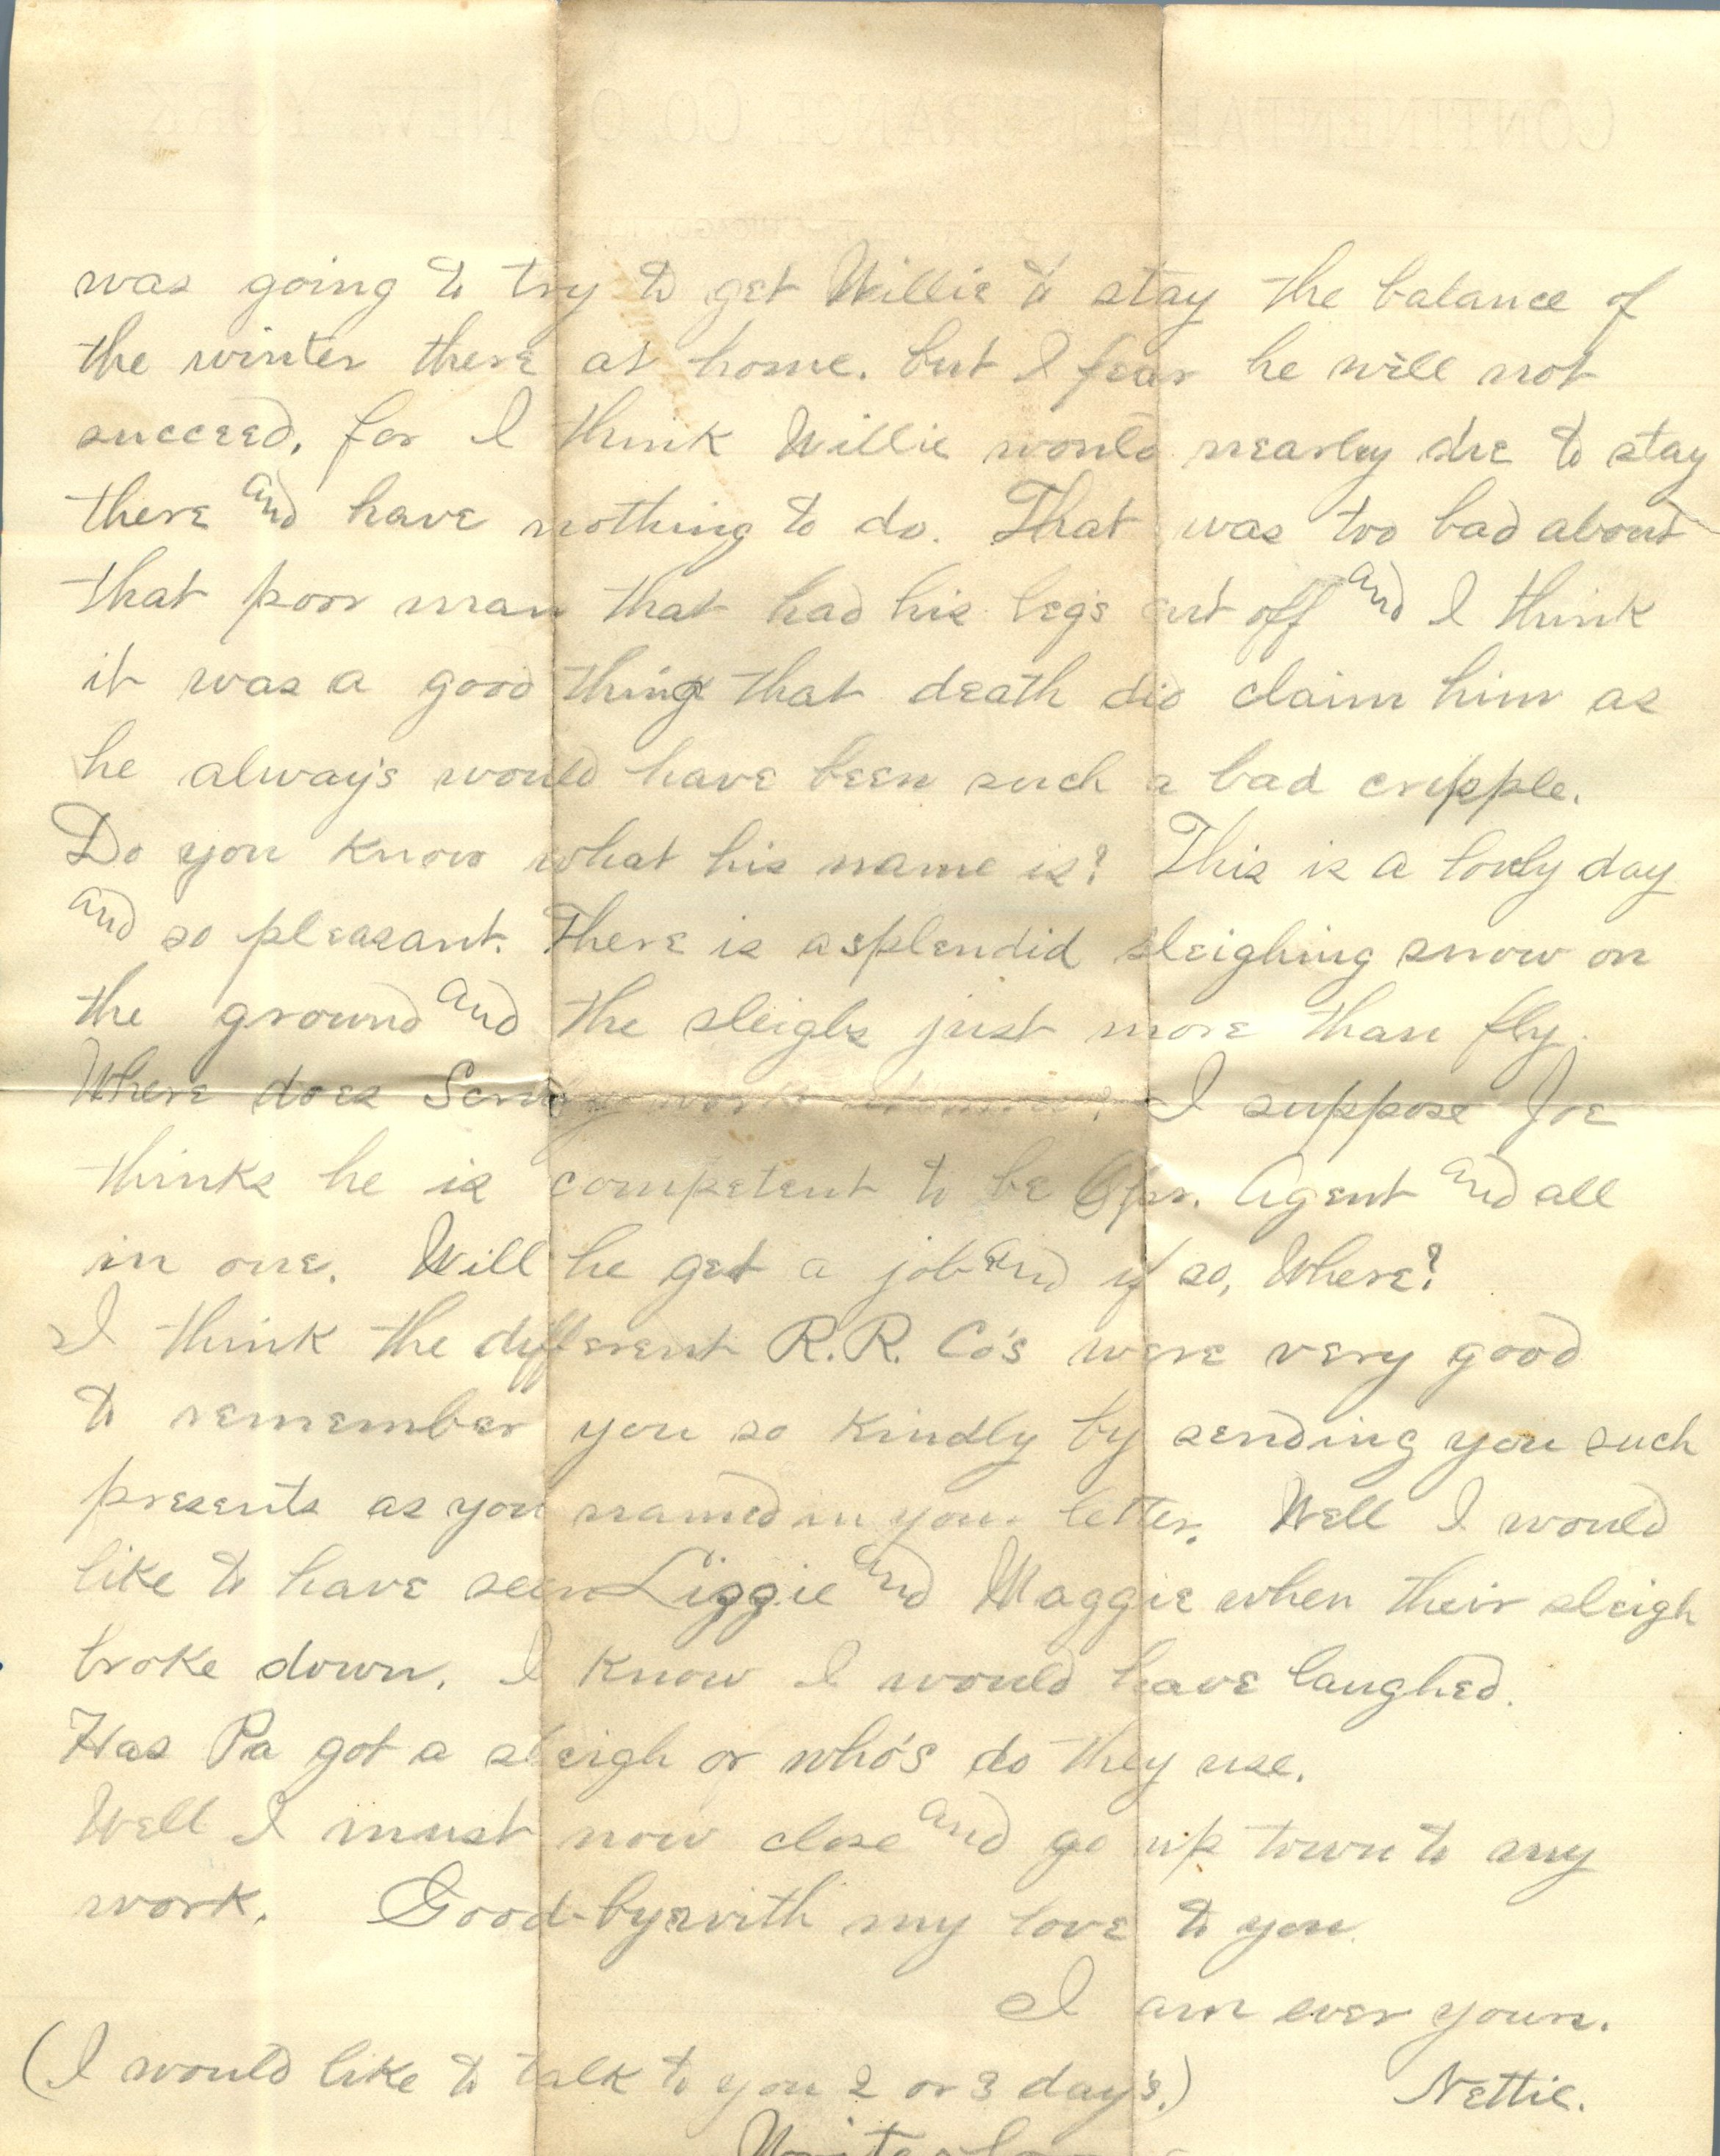 CONTINENTAL INSURANCE CO. OF NEW YORK
was going to try to get Willie to stay the balance of
the winter there at home. but I fear he will not
succeed, for I think Willie would nearley die to stay
there and have nothing to do. That was too bad about
that poor man that had his leg's cut off and I think
it was a good thing that death did claim him as
he alway's would have been such a bad cripple.
Do you know what his name is? This is a lovely day
and so pleasant. There is a splendid sleighing snow on
the ground and the sleighs just more than fly.
Where does work I suppose Joe
thinks he is competent to be Opr. Agent and all
in one. Will he get a job and if so, Where?
I think the different R.R. Co's were very good
to remember you so kindly by sending you such
presents as you named in your letter. Well I would
like to have seen Lizzie and Maggie when their sleigh
broke down. I know I would have laughed.
Has Pa got a sleigh or who's do they use.
Well I must now close and go up town to my
work. Good-by with my love to you.
I am ever yours.
(I would like to talk to you 2 or 3 day's.) Nettie.
Write